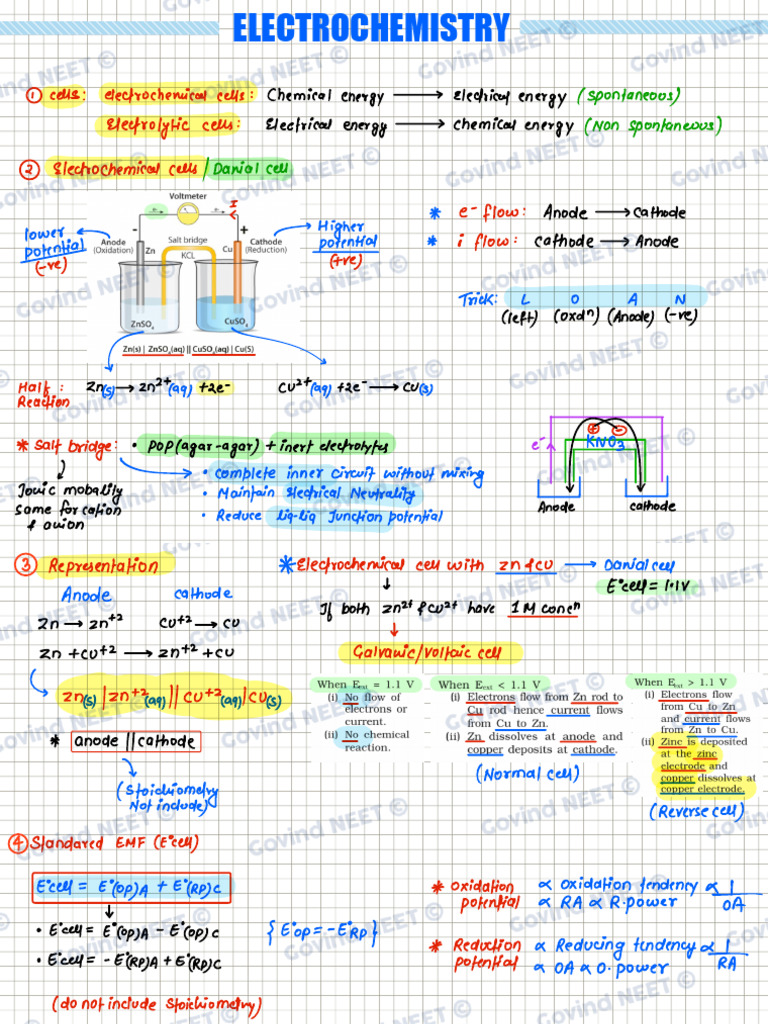 ELECTROCHEMISTRY
① cells: electrochemical cells: Chemical energy → Electrical energy (spontaneous)
Electrolytic cells: Electrical energy → chemical energy (Non spontaneous)
② Electrochemical cells / Danial cell
Voltmeter
e⁻ e⁻ I
- +
lower potential (-ve)
Anode (Oxidation) Zn
Salt bridge KCL
Cu Cathode (Reduction)
Higher potential (+ve)
ZnSO₄ CuSO₄
Zn(s) | ZnSO₄(aq) || CuSO₄(aq) | Cu(S)
* e⁻ flow: Anode → cathode
* i flow: cathode → Anode
Trick: L O A N
(left) (oxdⁿ) (Anode) (-ve)
Half Reaction: Zn(s) → Zn²⁺(aq) +2e⁻ Cu²⁺(aq) +2e⁻ → Cu(s)
* Salt bridge: • POP (agar-agar) + inert electrolytes
Ionic mobality same for cation & anion
• Complete inner circuit without mixing
• Maintain Electrical Neutrality
• Reduce liq-liq Junction potential
e⁻ + - KNO3
Anode cathode
③ Representation
Anode cathode
Zn → Zn⁺² Cu⁺² → Cu
Zn + Cu⁺² → Zn⁺² + Cu
Zn(s) | Zn⁺²(aq) || Cu⁺²(aq) | Cu(s)
* anode || cathode
(Stoichiometry Not include)
* Electrochemical cell with Zn & Cu → Danial cell
E°cell = 1.1V
If both Zn²⁺ & Cu²⁺ have 1M concⁿ
Galvanic/voltaic cell
When Eext = 1.1 V
(i) No flow of
electrons or
current.
(ii) No chemical
reaction.
When Eext < 1.1 V
(i) Electrons flow from Zn rod to
Cu rod hence current flows
from Cu to Zn.
(ii) Zn dissolves at anode and
copper deposits at cathode.
(Normal cell)
When Eext > 1.1 V
(i) Electrons flow
from Cu to Zn
and current flows
from Zn to Cu.
(ii) Zinc is deposited
at the zinc
electrode and
copper dissolves at
copper electrode.
(Reverse cell)
④ Standared EMF (E°cell)
E°cell = E°(OP)A + E°(RP)C
• E°cell = E°(OP)A - E°(OP)C {E°OP = -E°RP}
• E°cell = -E°(RP)A + E°(RP)C
(do not include Stoichiometry)
* Oxidation potential ∝ Oxidation tendency ∝ 1/OA
∝ RA ∝ R.power
* Reduction potential ∝ Reducing tendency ∝ 1/RA
∝ OA ∝ O.power
Govind NEET ©